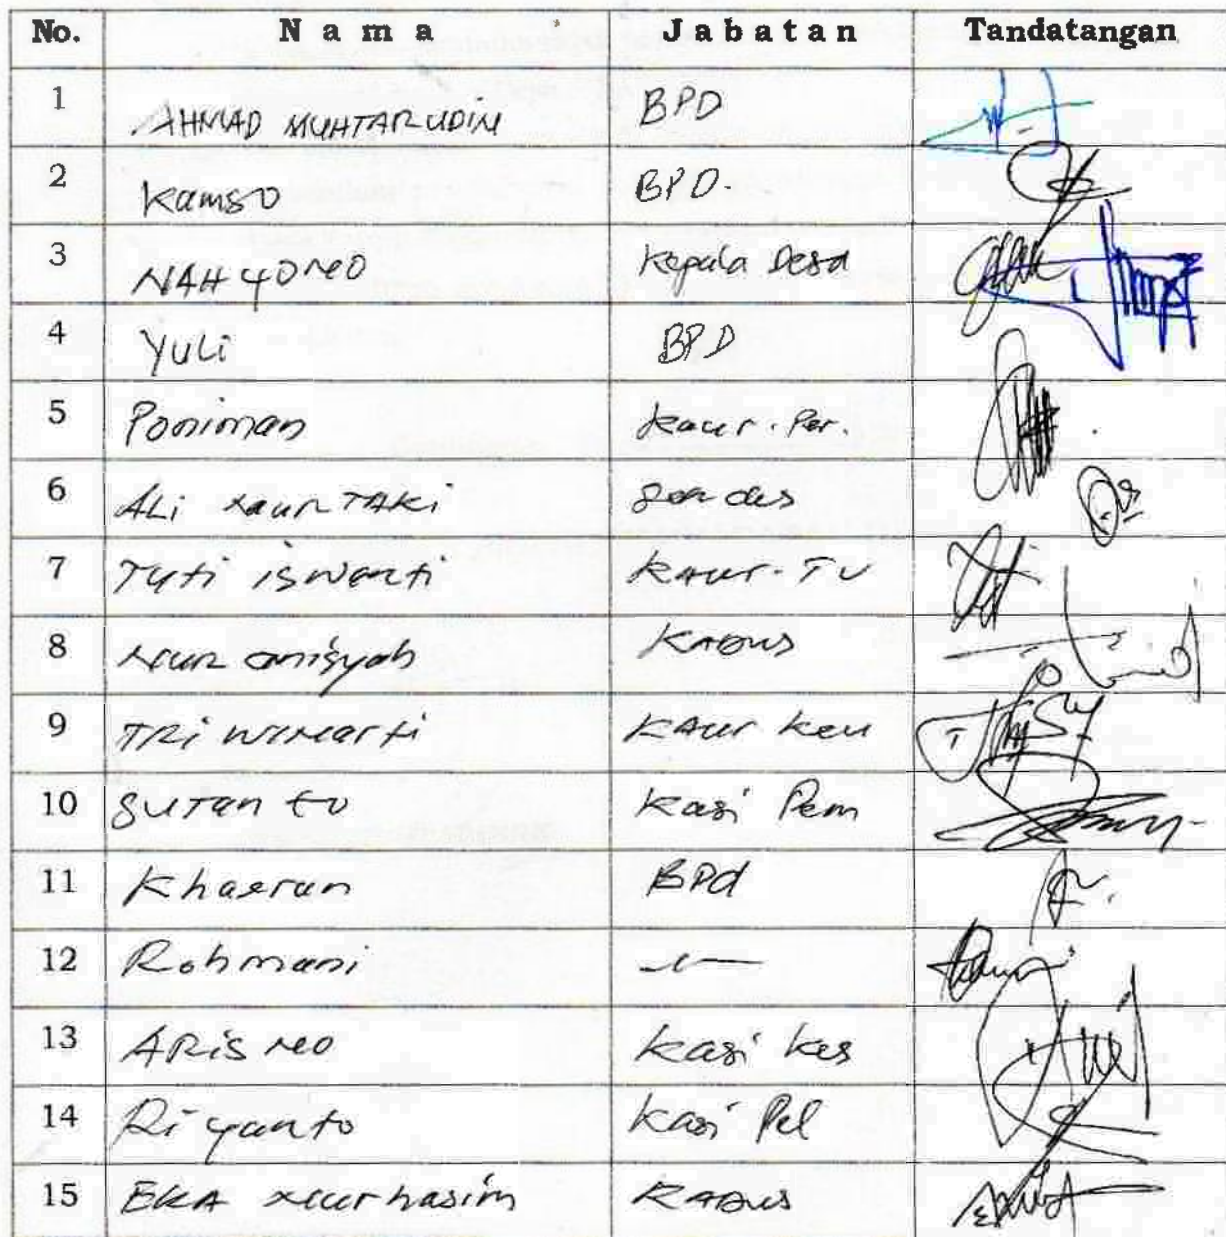 No. Nama Jabatan Tandatangan
1 AHMAD MUHTARUDIN BPD
2 Kamso BPD.
3 NAHYONO Kepala Desa
4 YULi BPD
5 Poniman Kaur. Per.
6 ALi NUR TAKi Sekdes
7 Tuti iswanti KAUR-TU
8 Nur anisyah KADUS
9 TRi WINarti KAUR Keu
10 SUTANTO Kasi Pem
11 Khaerun BPd
12 Rohmani
13 ARiSNO Kasi Kes
14 Riyanto Kasi Pel
15 EKA Nurhasim KADUS